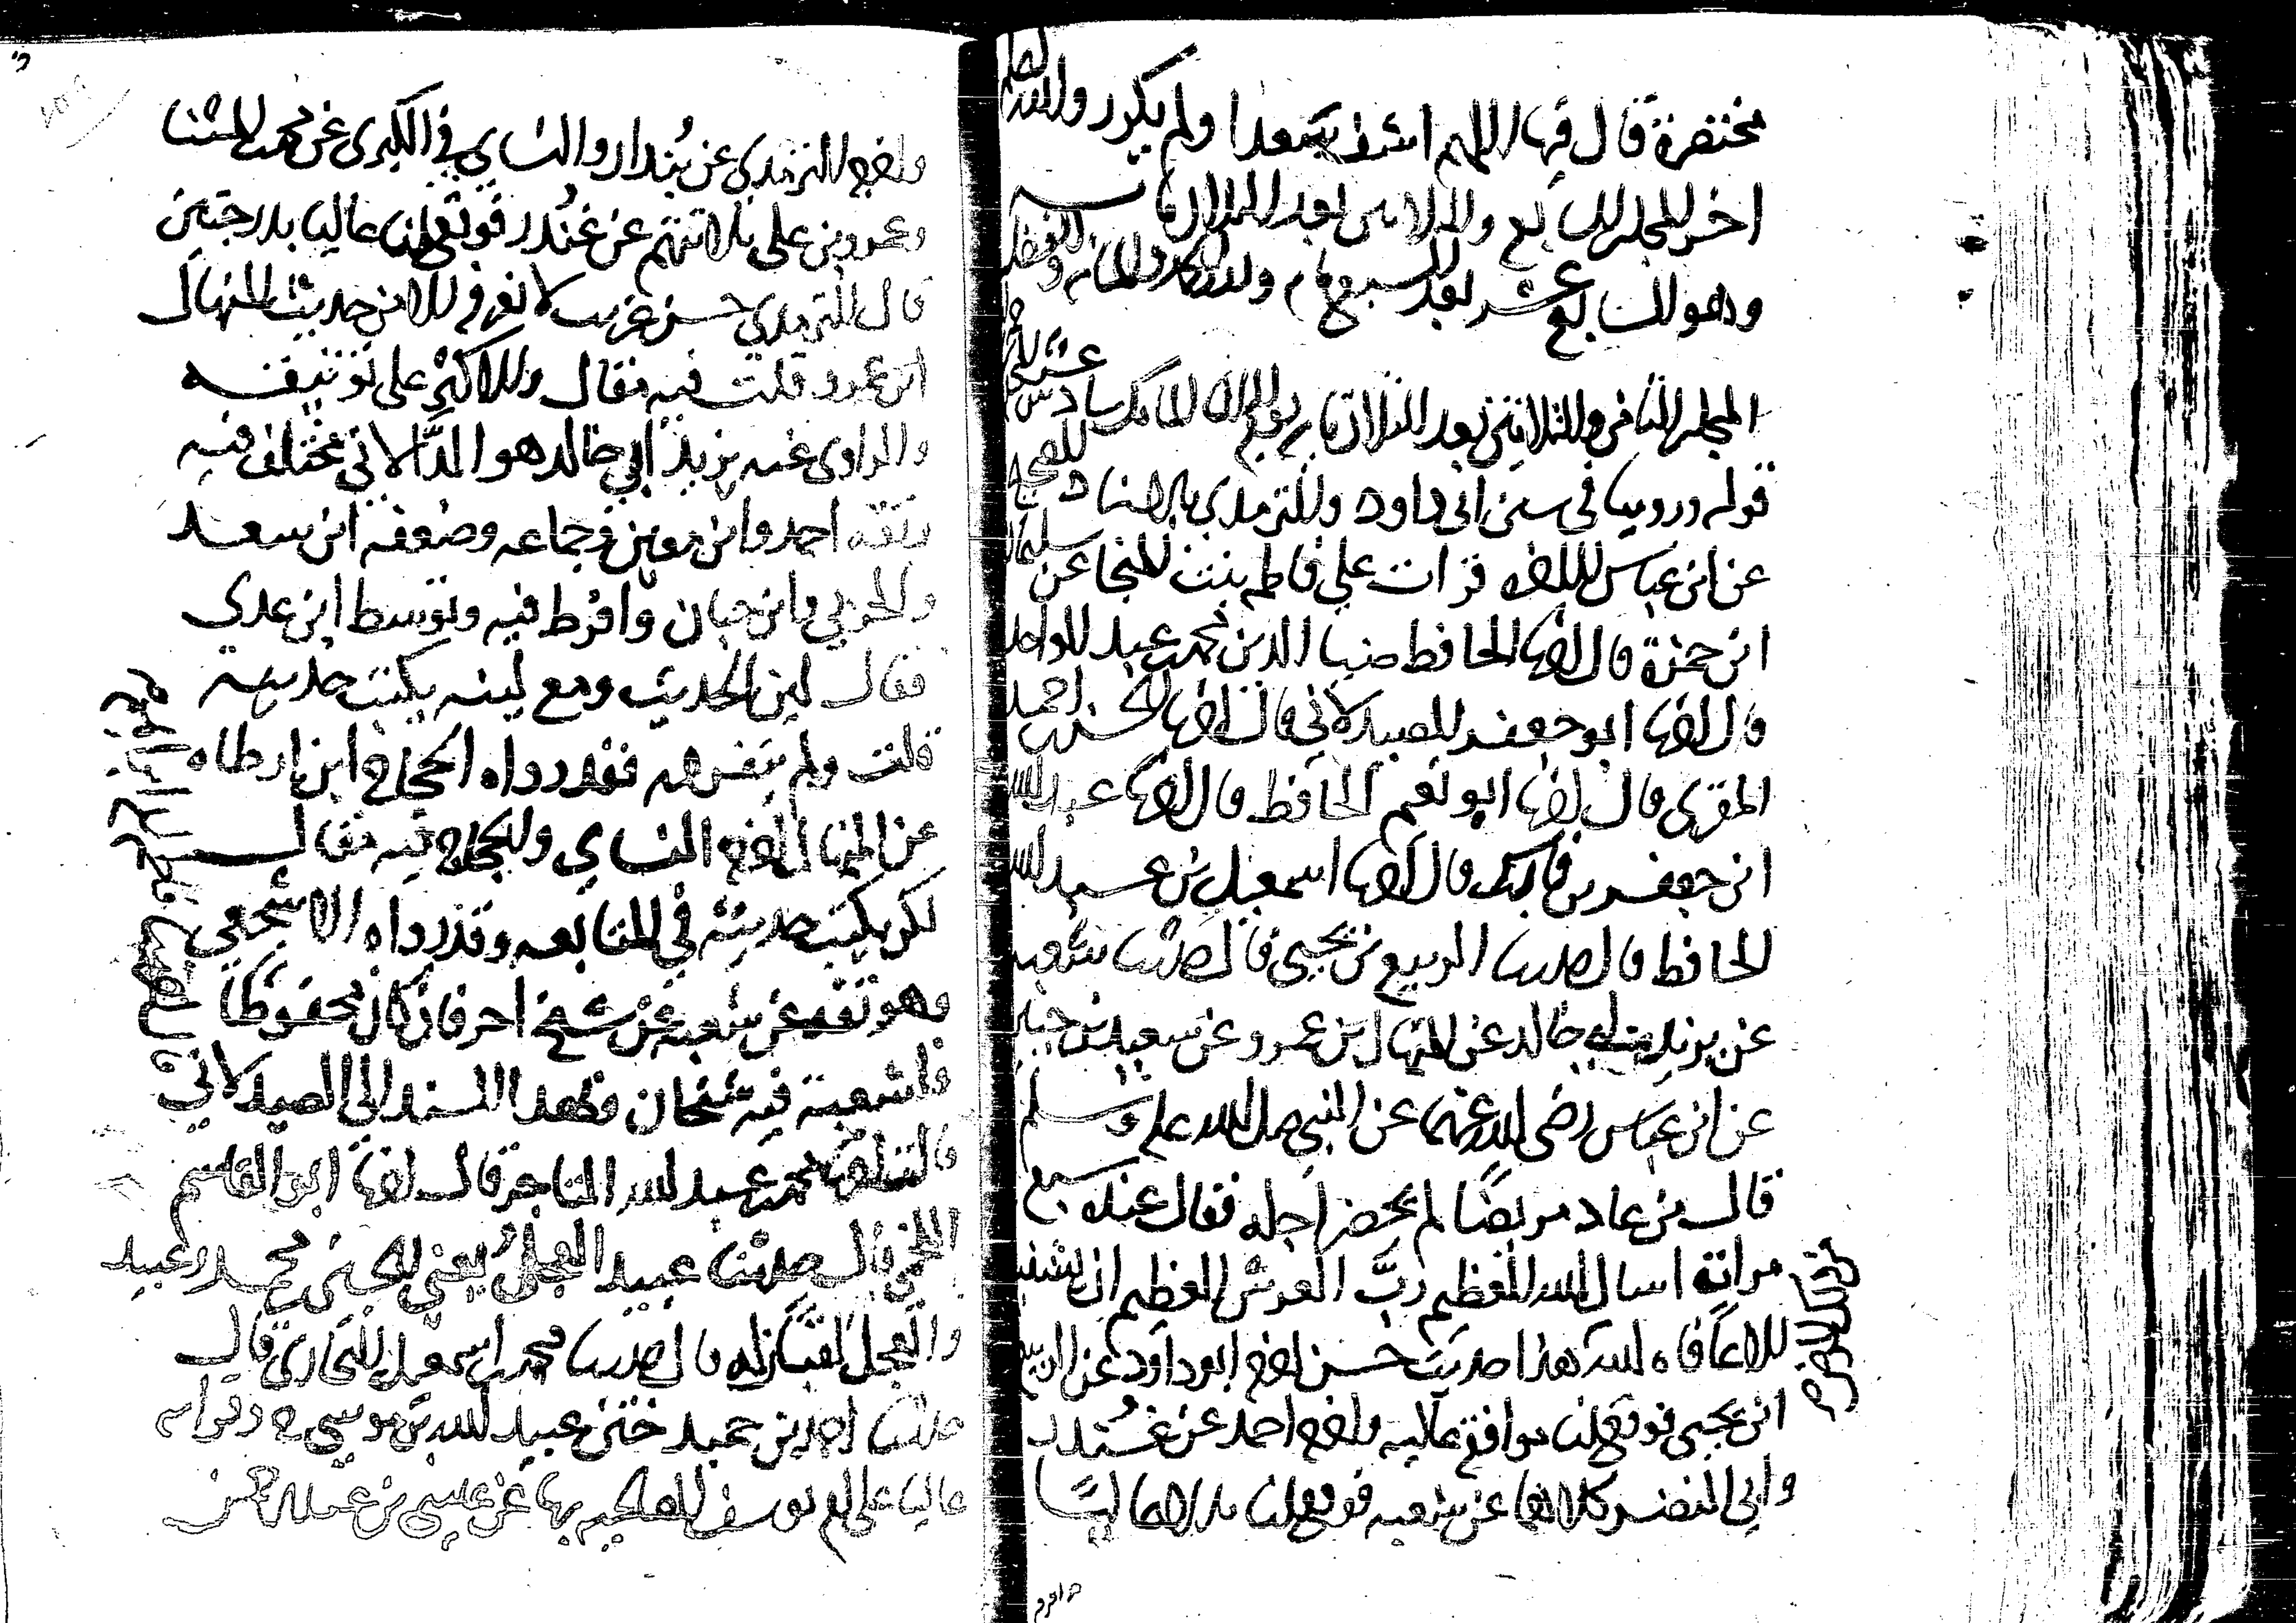 مختصرة قال فيها اللهم اشف سعدا ولم يكرر والله
اخر المجلس السابع والثلاثين بعد الثلاثمايه
وهو السابع عشر بعد السبعمايه
المجلس الثامن والثلاثين بعد الثلاثمايه
قوله وروينا في سنن ابي داود والترمذي بالاسناد
عن ابن عباس قرات على فاطمه بنت المنجا عن سليمان
ابن حمزة قال اخبرنا الحافظ ضيا الدين محمد بن عبد الواحد
قال اخبرنا ابو جعفر الصيدلاني قال اخبرنا الحسن بن احمد
المقري قال اخبرنا ابو نعيم الحافظ قال اخبرنا عبد الله
ابن جعفر بن فارس قال اخبرنا اسمعيل بن عبد الله
الحافظ قال حدثنا الربيع بن يحيى قال حدثنا شعبه
عن يزيد بن ابي خالد عن المنهال بن عمرو عن سعيد بن جبير
عن ابن عباس رضى الله عنهما عن النبي صلى الله عليه وسلم
قال من عاد مريضا لم يحضر اجله فقال عنده سبع
مرات اسال الله العظيم ربَّ العرش العظيم ان يشفيك
الا عافاه الله هذا حديث حسن اخرجه ابو داود عن الربيع
ابن يحيى فوقع لنا موافقة عاليه واخرجه احمد عن غندر
وابي النضر كلاهما عن شعبه فوقع لنا بدلا عاليًا
واخرجه الترمذي عن بُندار والنساي في الكبرى عن محمد بن المثنا
وعمرو بن علي ثلاثتهم عن غُندر فوقع لنا عاليا بدرجتين
قال الترمذي حسن غريب لا نعرفه الا من حديث المنهال
ابن عمرو قلت فيه مقال والاكثر على توثيقه
والراوي عنه يزيد ابي خالد هو الدَّالاني مختلف فيه
وثقه احمد وابن معين وجماعه وضعفه ابن سعد
والحربي وابن حبان وافرط فيه وتوسط ابن عدي
فقال لين الحديث ومع لينه يكتب حديثه
قلت ولم ينفرد به فقد رواه الحجاج ابن ارطاه
عن المنهال اخرجه النساي والحجاج فيه مقال
لكن يكتب حديثه في المتابعه وقد رواه الاشجعي
وهو ثقه عن شعبه عن شيخ اخر فان كان محفوظًا
فلشعبة فيه شيخان وبهذا السند الى الصيدلاني
قال اخبرنا محمد بن عبد الله التاجر قال اخبرنا ابو القاسم
اللخمي قال حدثنا عبيد العجل يعني الحسين بن محمد وعبيد
والعجل لقبان له قال حدثنا محمد بن اسمعيل البخاري قال
حدثنا احمد بن حميد ختن عبيد الله بن موسى ح وقراته
عاليا على ام يوسف الصالحيه بها عن عيسى بن عبد الرحمن